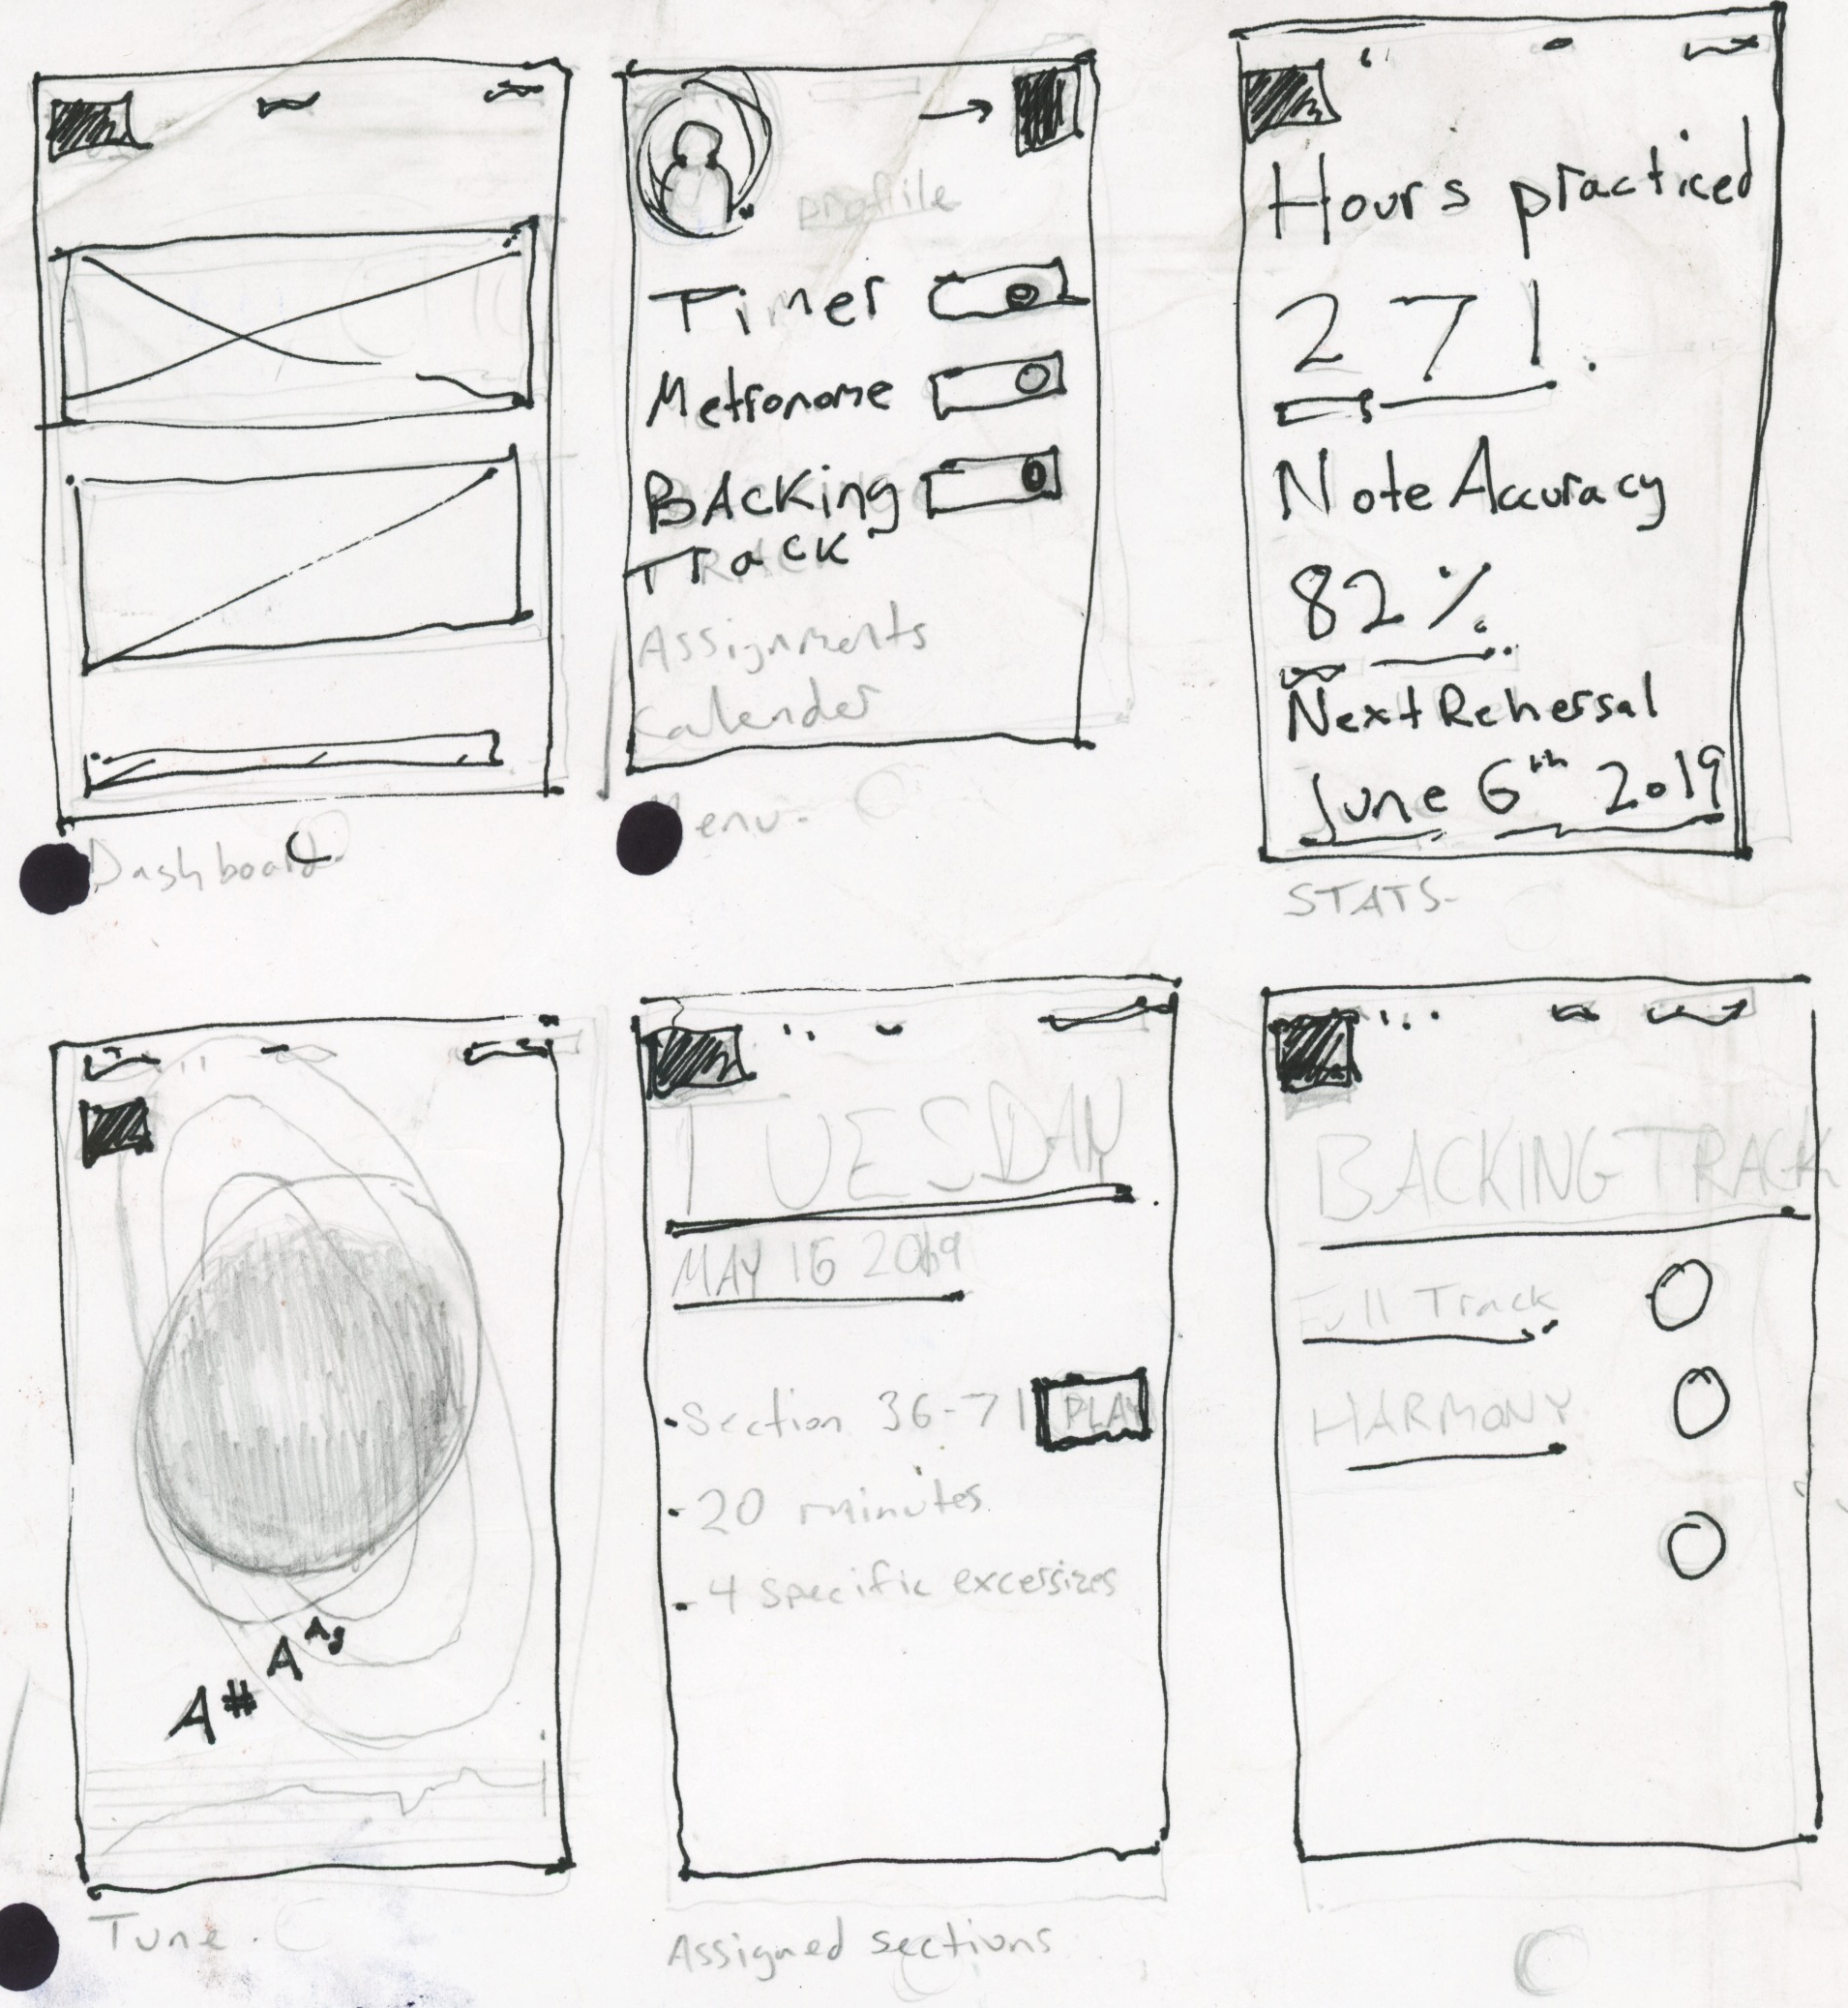 Dashboard
profile
Timer
Metronome
BAcKing
TRack
Assignments
Calender
Menu.
Hours practiced
271.
Note Accuracy
82%
Next Rehersal
June 6th 2019
STATS-
A# A
Tune.
TUESDAY
MAY 15 2019
-Section 36-71 PLAY
-20 minutes
-4 specific excersizes
Assigned sections
BACKING TRACK
Full Track
HARMONY